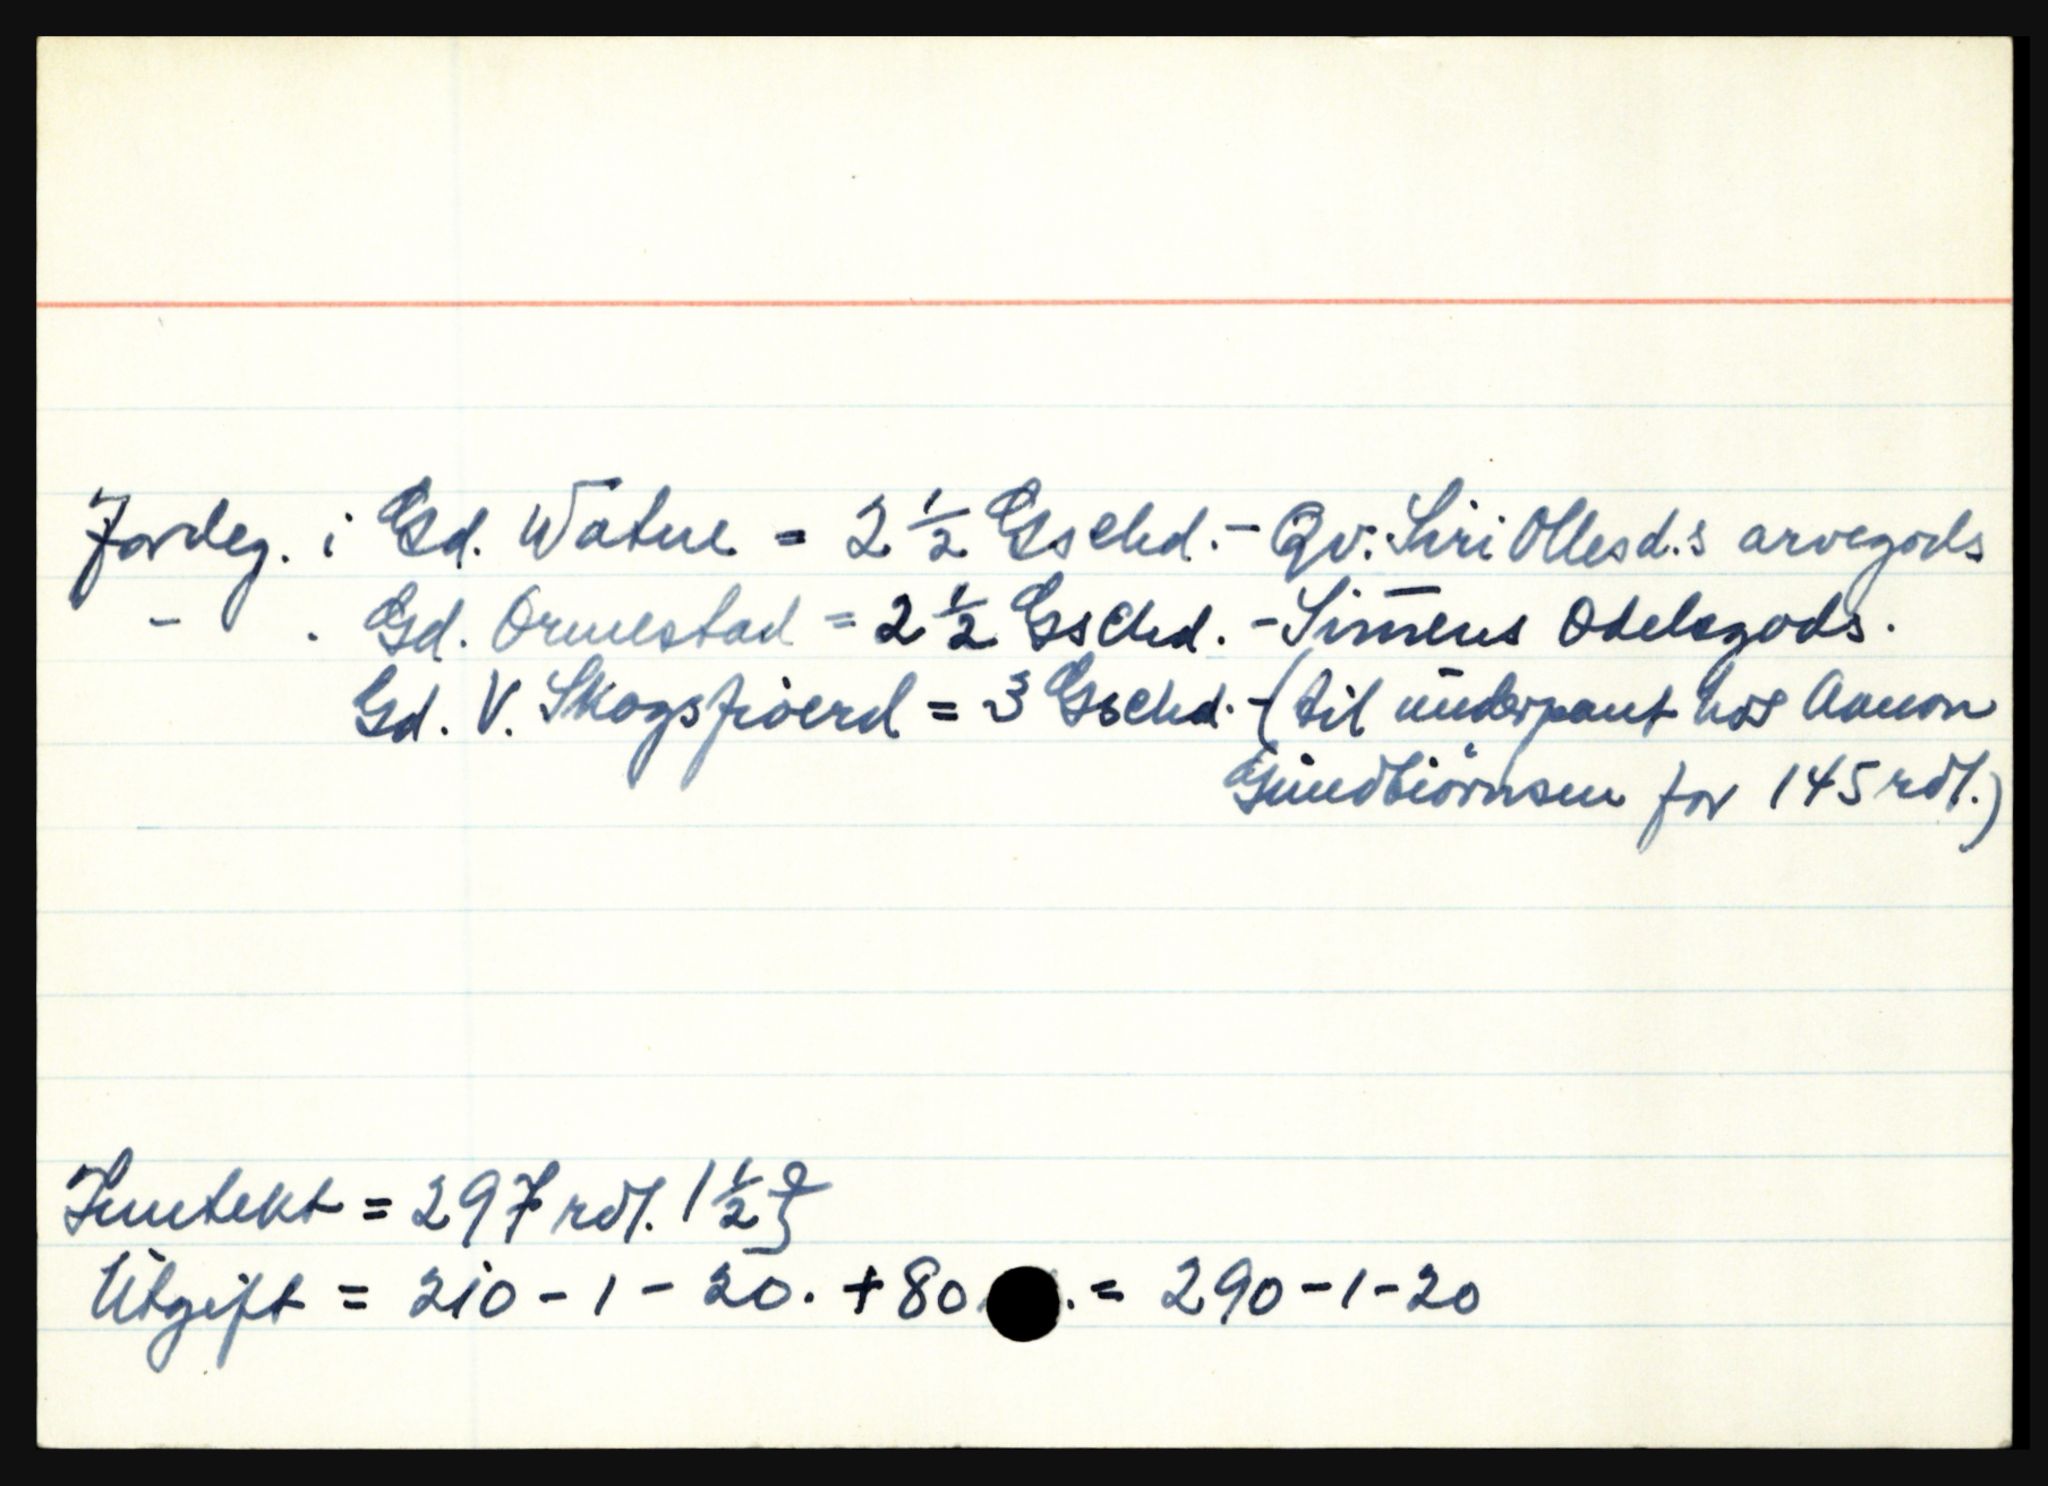 Jordeg. i Gd. Watne = 2 1/2 Gschd. - Qv: Siri Ollesd.s arvegods
- . Gd. Ormestad = 2 1/2 Gschd. - Simens Odelsgods.
Gd. V. Skogsfioerd = 3 Gschd. - (til underpant hos Aanon
Gundbiørnsen for 145 rdl.)
Inntekt = 297 rdl. 1 1/2 ẞ
Utgift = 210 - 1 - 20. + 80 . = 290 - 1 - 20